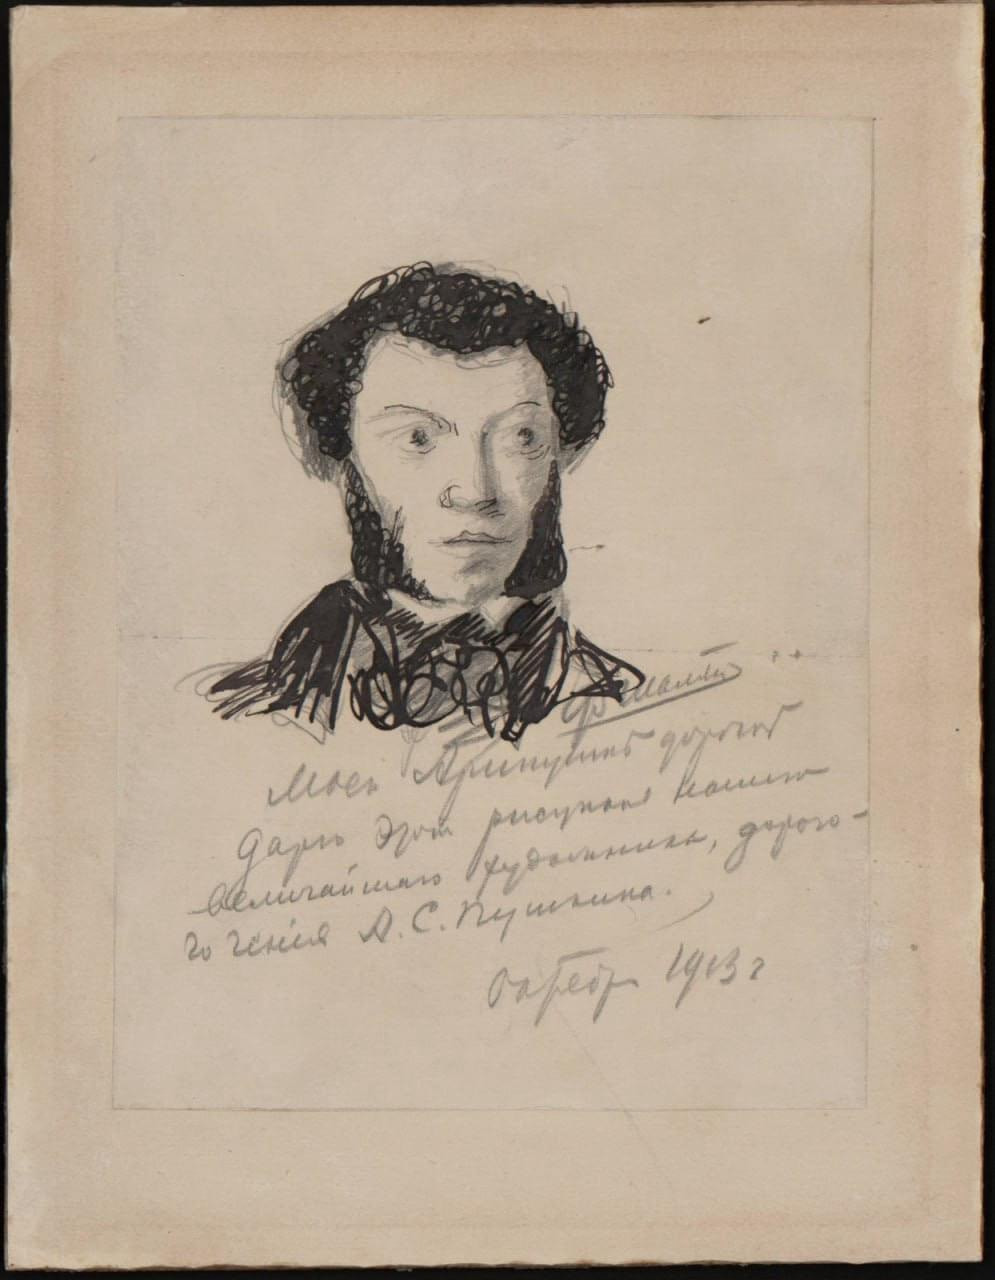 Ф. Малят
Моей Аринушке дорогой
дарю этот рисунок нашего
величайшаго художника, дорого-
го гения А. С. Пушкина.
Октябрь 1913 г